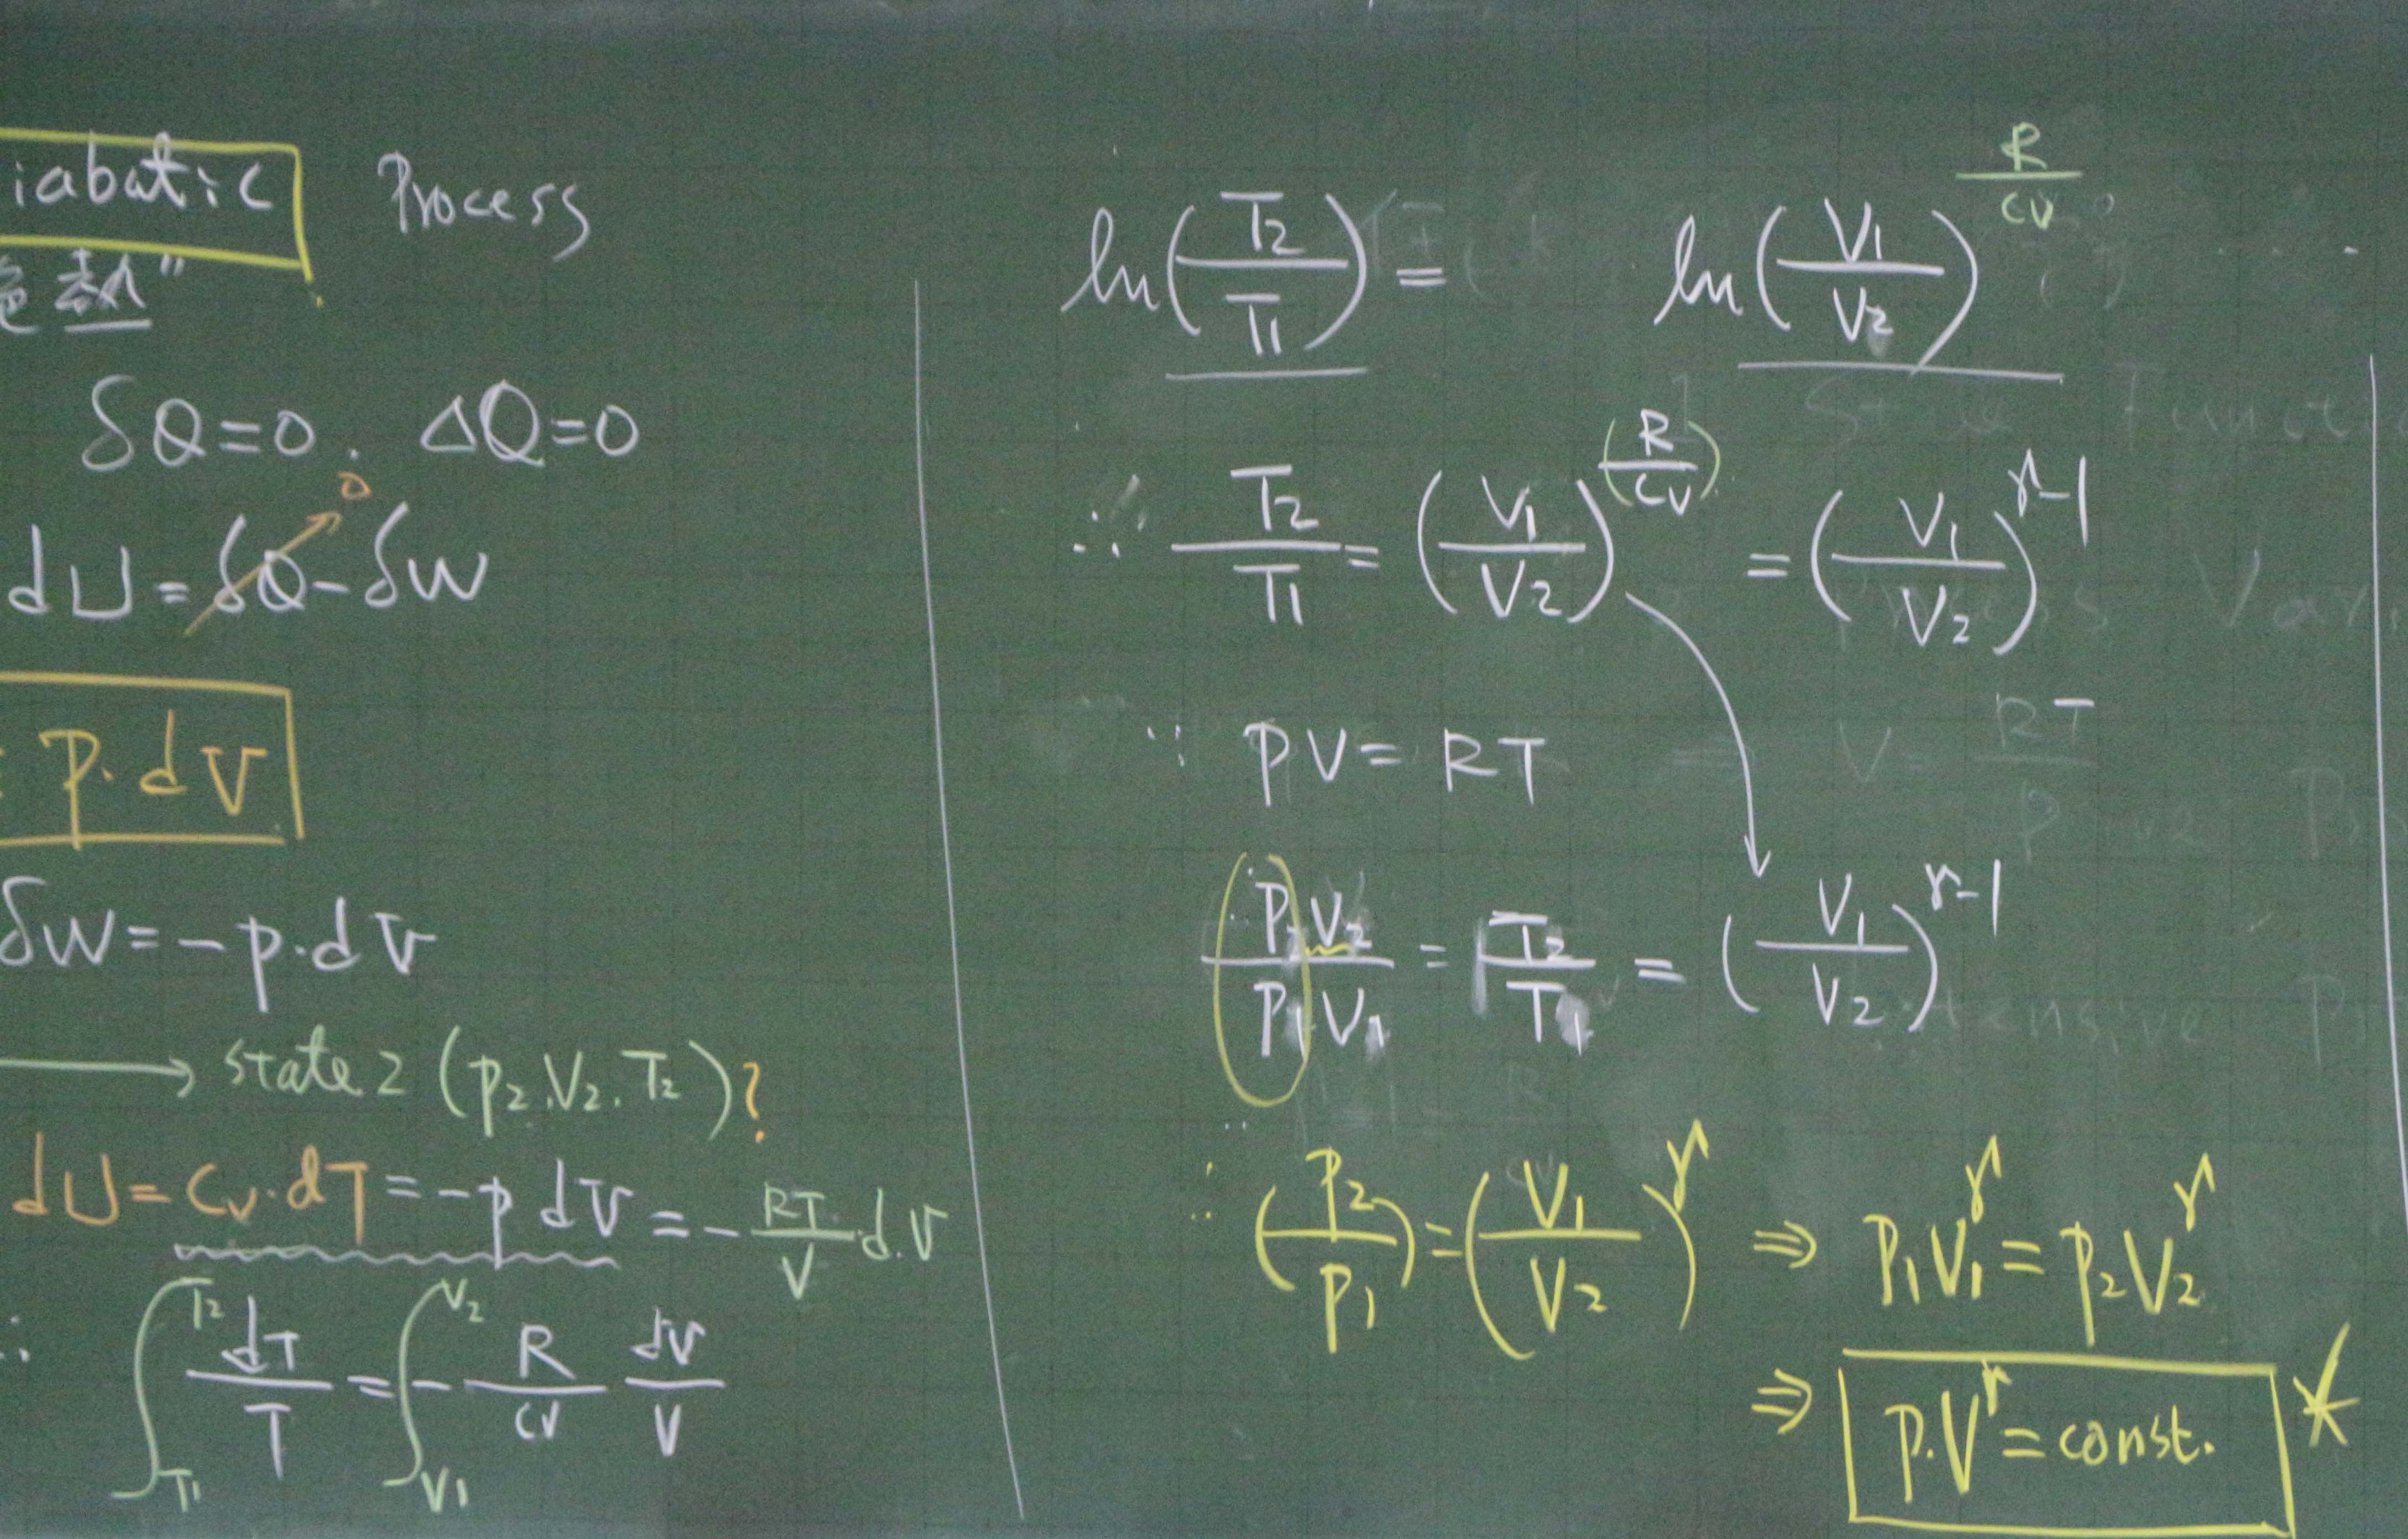 iabatic Process
絶熱"
δQ=0. ΔQ=0
dU=δQ-δW
0
= P.dV
δW=-p.dV
→ state 2 (p₂.V₂.T₂)?
dU=Cv.dT=-p dV=-RT/V d.V
∴ ∫_T1^T2 dT/T = ∫_V1^V2 -R/CV dV/V
ln(T₂/T1) = ln(V1/V₂)^(R/CV)
∴ T₂/T1 = (V1/V₂)^(R/CV) = (V1/V₂)^(γ-1)
∵ PV=RT
P₂V₂/P₁V₁ = T₂/T₁ = (V1/V₂)^(γ-1)
∴ (P₂/P1)=(V1/V₂)^γ ⇒ P₁V₁^γ=P₂V₂^γ
⇒ P.V^γ=const. *